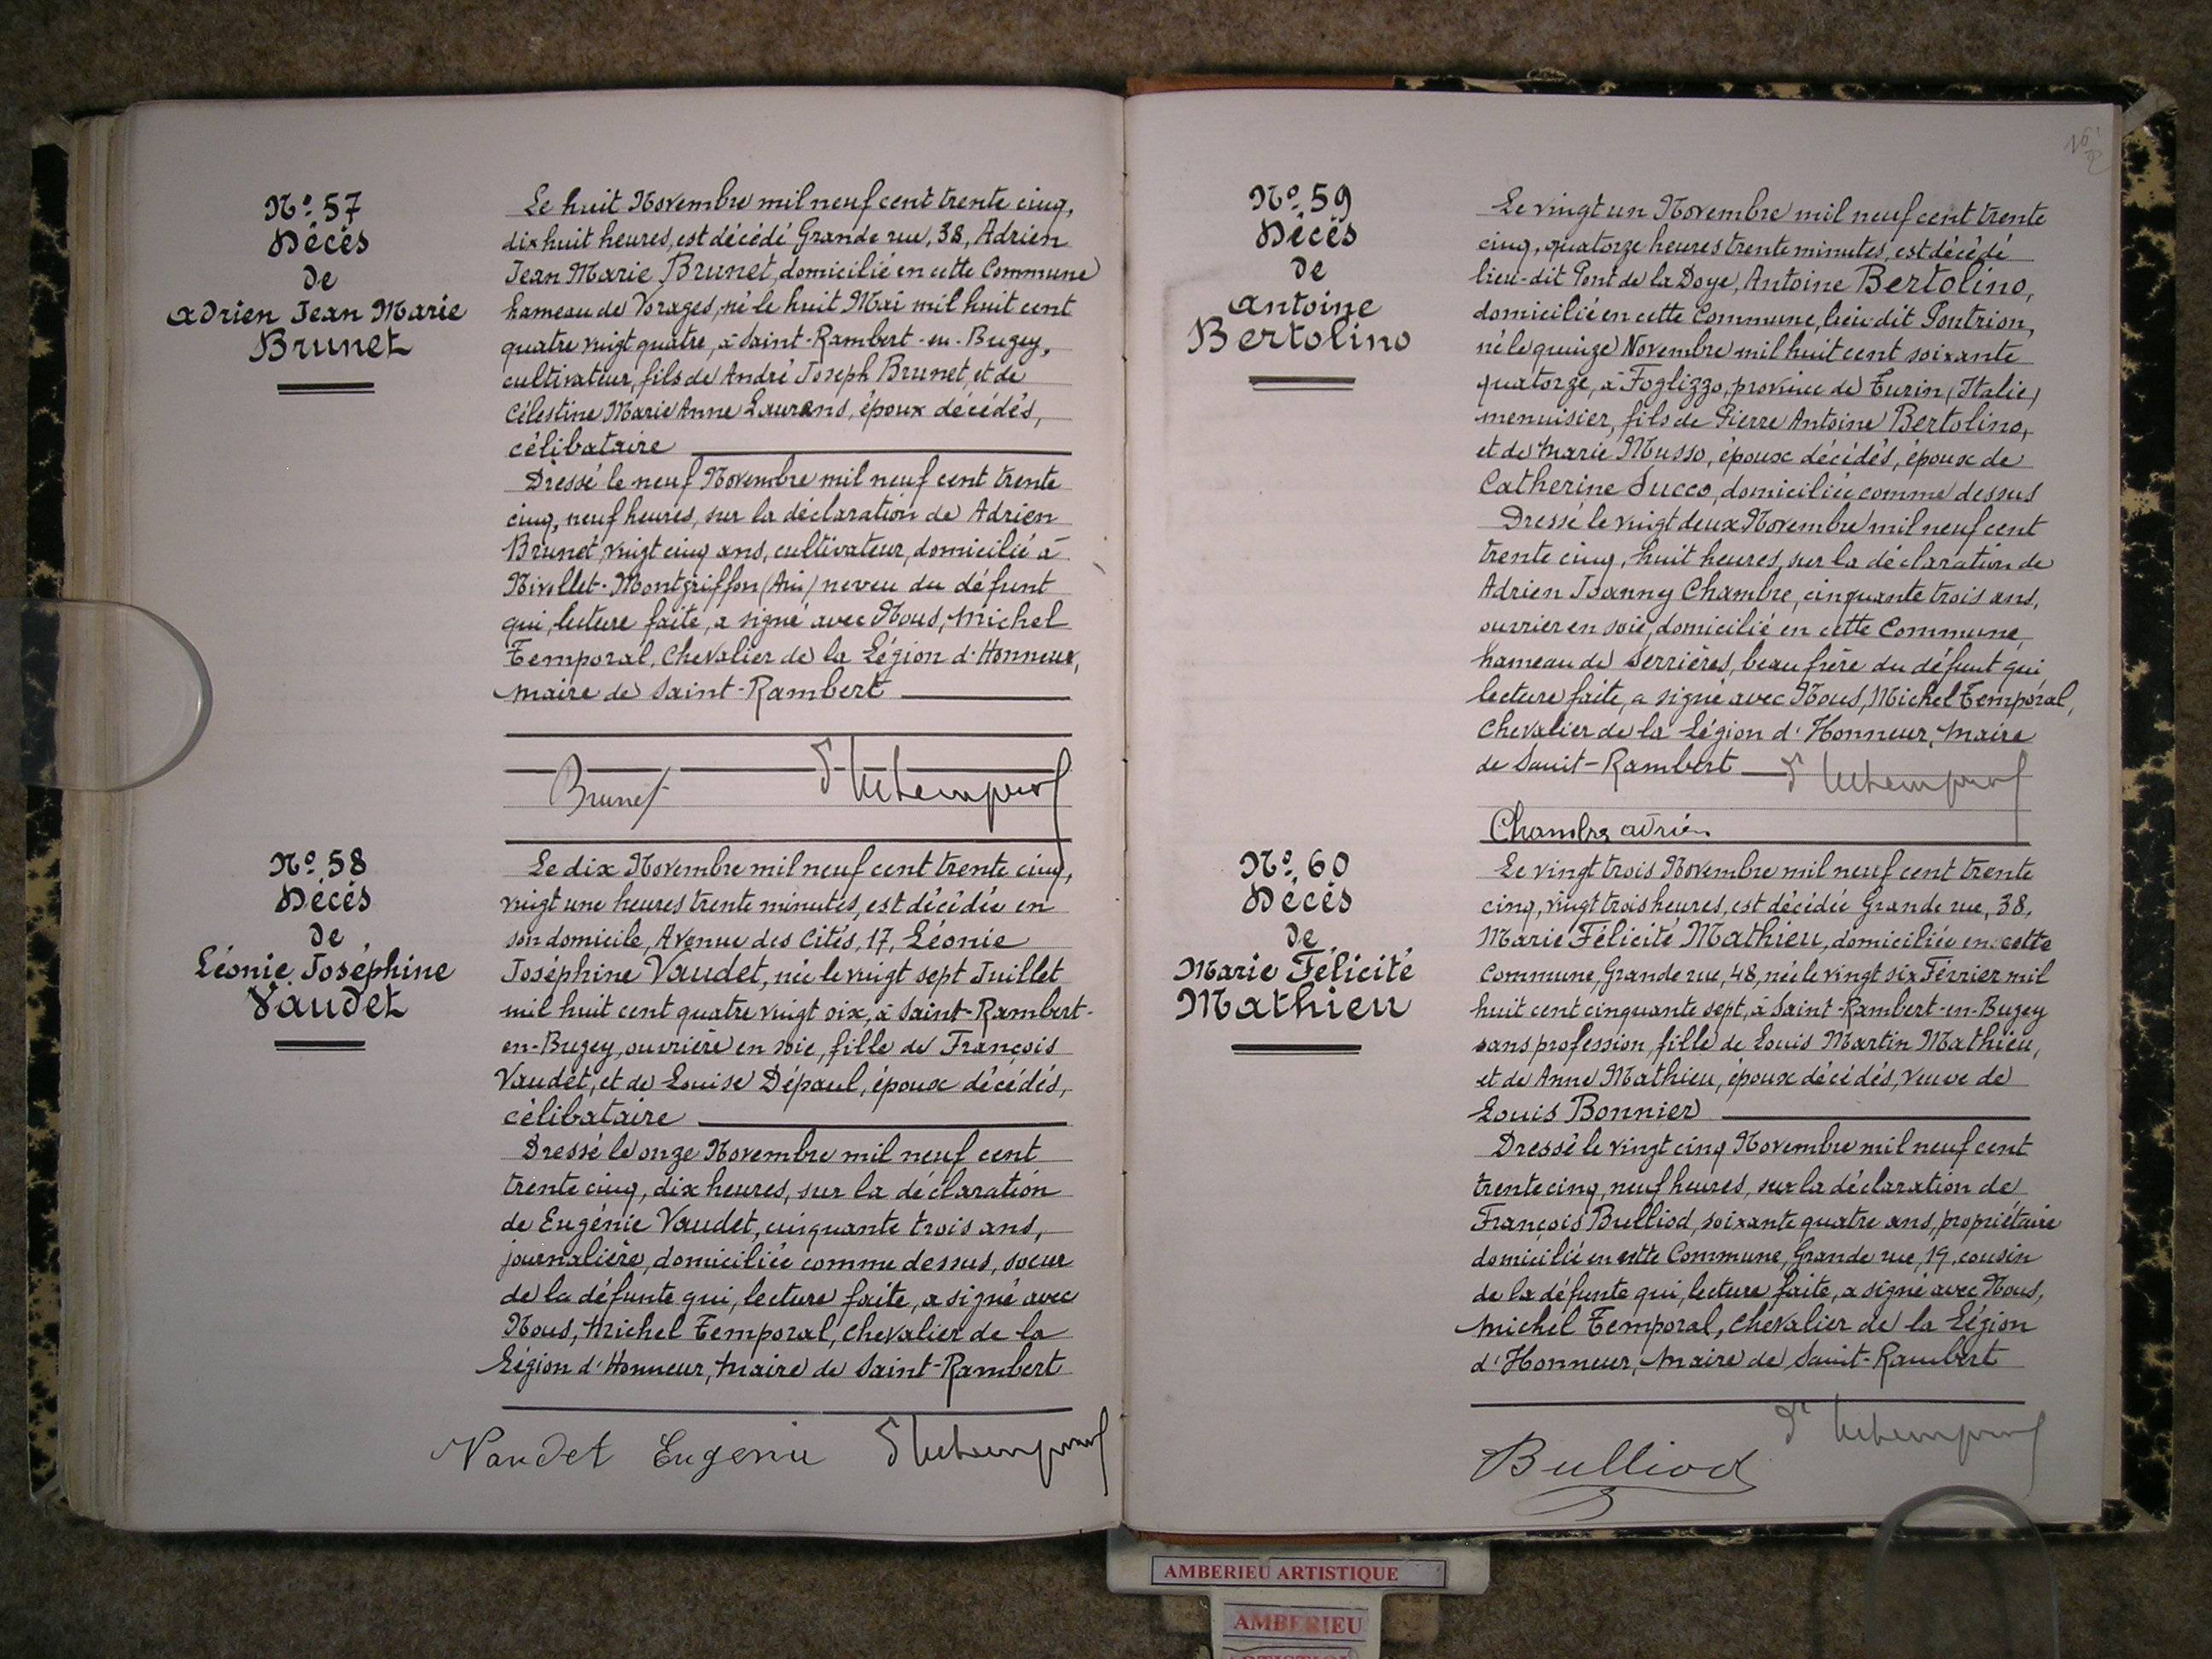 N° 57
Décès
de
Adrien Jean Marie
Brunet
Le huit Novembre mil neuf cent trente cinq,
dix huit heures, est décédé Grande rue, 38, Adrien
Jean Marie Brunet, domicilié en cette Commune
hameau de Vorages, né le huit Mai mil huit cent
quatre vingt quatre, à Saint-Rambert-en-Bugey,
cultivateur, fils de André Joseph Brunet, et de
Célestine Marie Anne Laurens, époux décédés,
célibataire
Dressé le neuf Novembre mil neuf cent trente
cinq, neuf heures, sur la déclaration de Adrien
Brunet, vingt cinq ans, cultivateur, domicilié à
Nivollet-Montgriffon (Ain) neveu du défunt
qui, lecture faite, a signé avec Nous, Michel
Temporal, Chevalier de la Légion d'Honneur,
Maire de Saint-Rambert
Brunet
N° 58
Décès
de
Léonie Joséphine
Vaudet
Le dix Novembre mil neuf cent trente cinq,
vingt une heures trente minutes, est décédée en
son domicile, Avenue des Cités, 17, Léonie
Joséphine Vaudet, née le vingt sept Juillet
mil huit cent quatre vingt six, à Saint-Rambert-
en-Bugey, ouvrière en soie, fille de François
Vaudet, et de Louise Dépaul, époux décédés,
célibataire
Dressé le onze Novembre mil neuf cent
trente cinq, dix heures, sur la déclaration
de Eugénie Vaudet, cinquante trois ans,
journalière, domiciliée comme dessus, soeur
de la défunte qui, lecture faite, a signé avec
Nous, Michel Temporal, Chevalier de la
Légion d'Honneur, Maire de Saint-Rambert
Vaudet Eugenie
N° 59
Décès
de
Antoine
Bertolino
Le vingt un Novembre mil neuf cent trente
cinq, quatorze heures trente minutes, est décédé
lieu-dit Pont de la Doye, Antoine Bertolino,
domicilié en cette Commune, lieu-dit Pontrion,
né le quinze Novembre mil huit cent soixante
quatorze, à Foglizzo, province de Turin (Italie)
menuisier, fils de Pierre Antoine Bertolino,
et de Marie Musso, époux décédés, époux de
Catherine Succo, domiciliée comme dessus
Dressé le vingt deux Novembre mil neuf cent
trente cinq, huit heures, sur la déclaration de
Adrien Joanny Chambre, cinquante trois ans,
ouvrier en soie, domicilié en cette Commune,
hameau de Serrières, beau frère du défunt qui,
lecture faite, a signé avec Nous, Michel Temporal,
Chevalier de la Légion d'Honneur, Maire
de Saint-Rambert
Chambre Adrien
N° 60
Décès
de
Marie Félicité
Mathieu
Le vingt trois Novembre mil neuf cent trente
cinq, vingt trois heures, est décédée Grande rue, 38,
Marie Félicité Mathieu, domiciliée en cette
Commune, Grande rue, 48, née le vingt six Février mil
huit cent cinquante sept, à Saint-Rambert-en-Bugey
sans profession, fille de Louis Martin Mathieu,
et de Anne Mathieu, époux décédés, veuve de
Louis Bonnier
Dressé le vingt cinq Novembre mil neuf cent
trente cinq, neuf heures, sur la déclaration de
François Bulliod, soixante quatre ans, propriétaire
domicilié en cette Commune, Grande rue, 19, cousin
de la défunte qui, lecture faite, a signé avec Nous,
Michel Temporal, Chevalier de la Légion
d'Honneur, Maire de Saint-Rambert
Bulliod
AMBERIEU ARTISTIQUE
AMBERIEU